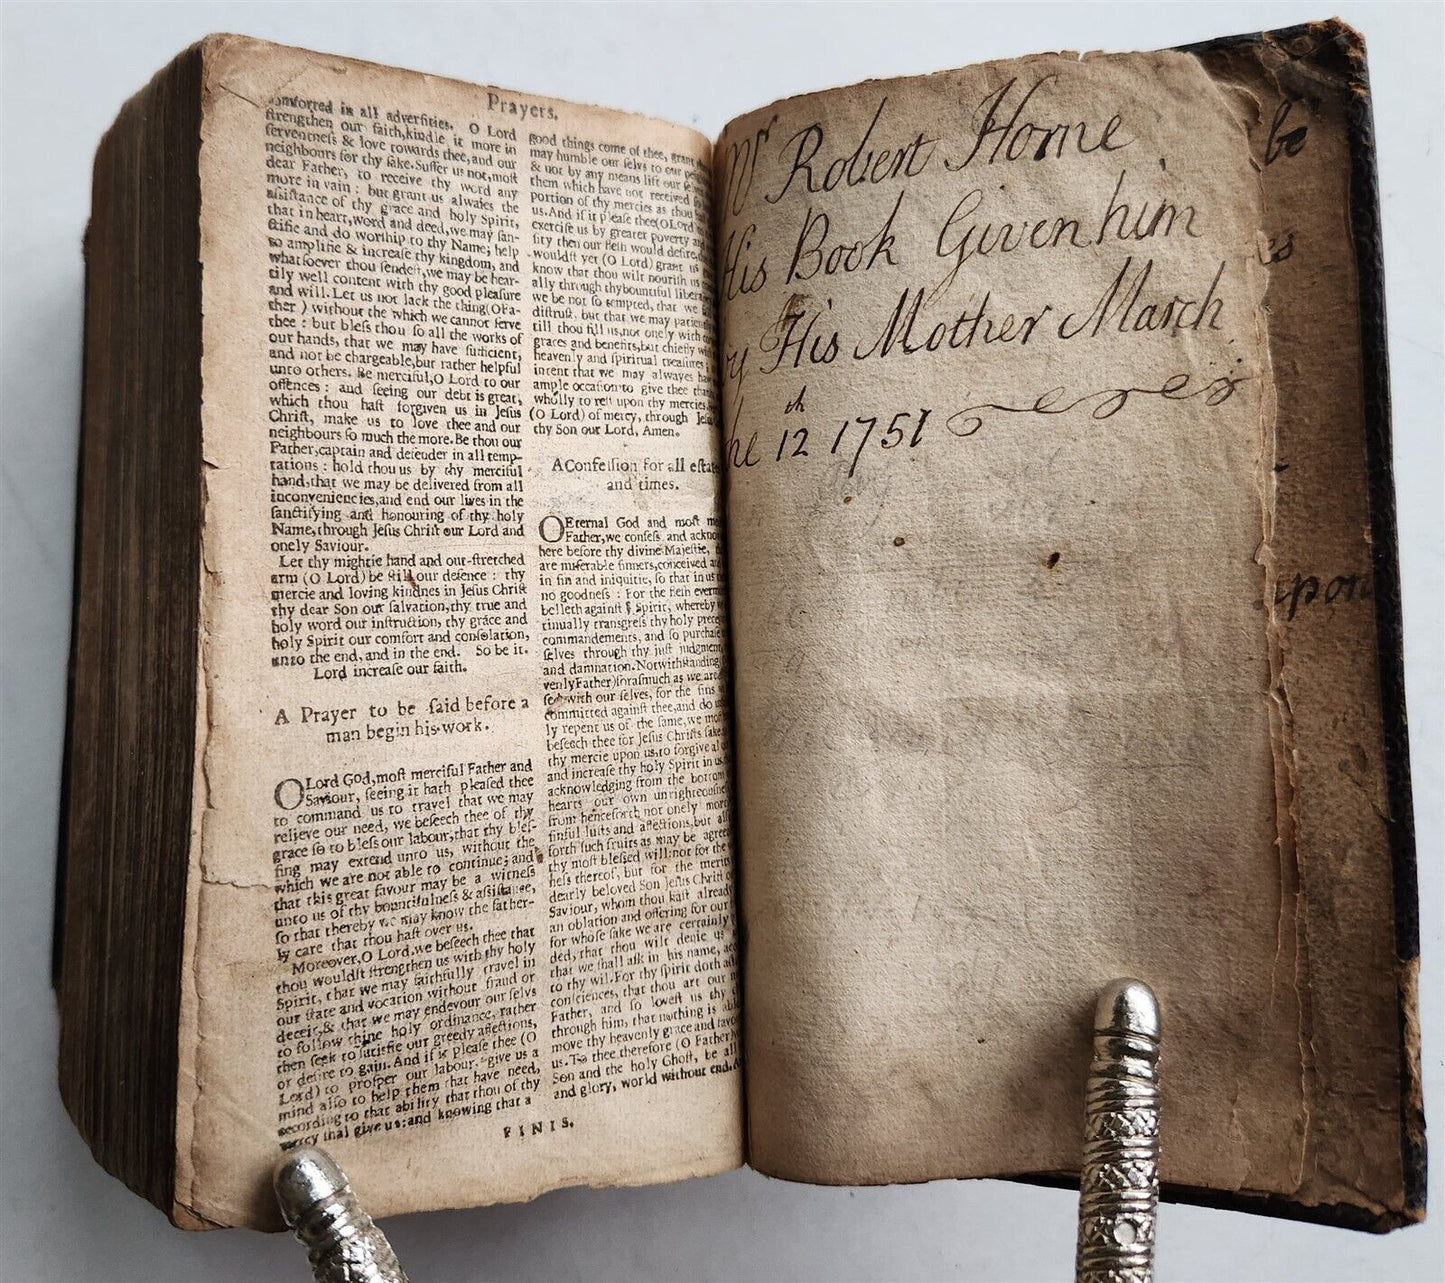 Prayers.
comforted in all adversities. O Lord
strengthen our faith, kindle it more in
ferventness & love towards thee, and our
neighbours for thy sake. Suffer us not, most
dear Father, to receive thy word any
more in vain : but grant us alwaies the
assistance of thy grace and holy Spirit,
that in heart, word and deed, we may san-
ctifie and do worship to thy Name; help
to amplifie & increase thy kingdom, and
whatsoever thou sendest, we may be hear-
tily well content with thy good pleasure
and will. Let us not lack the thing (O Fa-
ther ) without the which we cannot serve
thee : but bless thou so all the works of
our hands, that we may have sufficient,
and not be chargeable, but rather helpful
unto others. Be merciful, O Lord to our
offences : and seeing our debt is great,
which thou hast forgiven us in Jesus
Christ, make us to love thee and our
neighbours so much the more. Be thou our
Father, captain and defender in all temp-
tations : hold thou us by thy merciful
hand, that we may be delivered from all
inconveniencies, and end our lives in the
sanctifying and honouring of thy holy
Name, through Jesus Christ our Lord and
onely Saviour.
Let thy mightie hand and out-stretched
arm (O Lord) be still our defence : thy
mercie and loving kindnes in Jesus Christ
thy dear Son our salvation, thy true and
holy word our instruction, thy grace and
holy Spirit our comfort and consolation,
unto the end, and in the end. So be it.
Lord increase our faith.
A Prayer to be said before a
man begin his work.
O Lord God, most merciful Father and
Saviour, seeing it hath pleased thee
to command us to travel that we may
relieve our need, we beseech thee of thy
grace so to bless our labour, that thy bles-
sing may extend unto us, without the
which we are not able to continue; and
that this great favour may be a witness
unto us of thy bountifulness & assistance,
so that thereby we may know the father-
ly care that thou hast over us.
Moreover, O Lord, we beseech thee that
thou wouldst strengthen us with thy holy
Spirit, that we may faithfully travel in
our state and vocation without fraud or
deceit, & that we may endevour our selvs
to follow thine holy ordinance, rather
then seek to satisfie our greedy affections,
or desire to gain. And if it please thee (O
Lord) to prosper our labour, give us a
mind also to help them that have need,
according to that ability that thou of thy
mercy shal give us: and knowing that a
good things come of thee, grant
may humble our selvs to our
& not by any means lift our
them which have not received
portion of thy mercies as thou
us. And if it please thee (O Lord
exercise us by greater poverty and
sity then our flesh would desire,
wouldst yet (O Lord) grant us
know that thou wilt nourish us
ally through thy bountiful
we be not so tempted, that we
distrust, but that we may
till thou fill us, not onely with
graces and benefits, but chiefly with
heavenly and spiritual treasures
intent that we may alwayes
ample occasion to give thee
wholly to rest upon thy mercies.
(O Lord) of mercy, through
thy Son our Lord, Amen.
A Confession for all
and times.
O Eternal God and most
Father, we confess and
here before thy divine Majestie,
are miserable sinners, conceived
in sin and iniquitie, so that in us
no goodness : For the flesh
belleth against ye Spirit, whereby
tinually transgress thy holy
commandements, and so purchase
selves through thy just judgment,
and damnation. Notwithstanding
venly Father) forasmuch as we are
sed with our selves, for the sins
committed against thee, and do
ly repent us of the same, we
beseech thee for Jesus Christs sake
thy mercie upon us, to forgive
and increase thy holy Spirit in us,
acknowledging from the bottom
hearts our own
from henceforth not onely
sinful lusts and affections, but
forth such fruits as may be
thy most blessed will: not for the
ness thereof, but for the merits
dearly beloved Son Jesus Christ
Saviour, whom thou hast already
an oblation and offering for our
for whose sake we are certainly
ded, that thou wilt denie us
that we shall ask in his name,
to thy wil. For thy spirit doth
consciences, that thou art our
Father, and so lovest us thy
through him, that nothing is
move thy heavenly grace and
us. To thee therefore (O Father
Son and the holy Ghost, be all
and glory, world without end.
FINIS.
Mr Robert Horne
His Book Given him
by His Mother March
the 12th 1751
be
es
upon